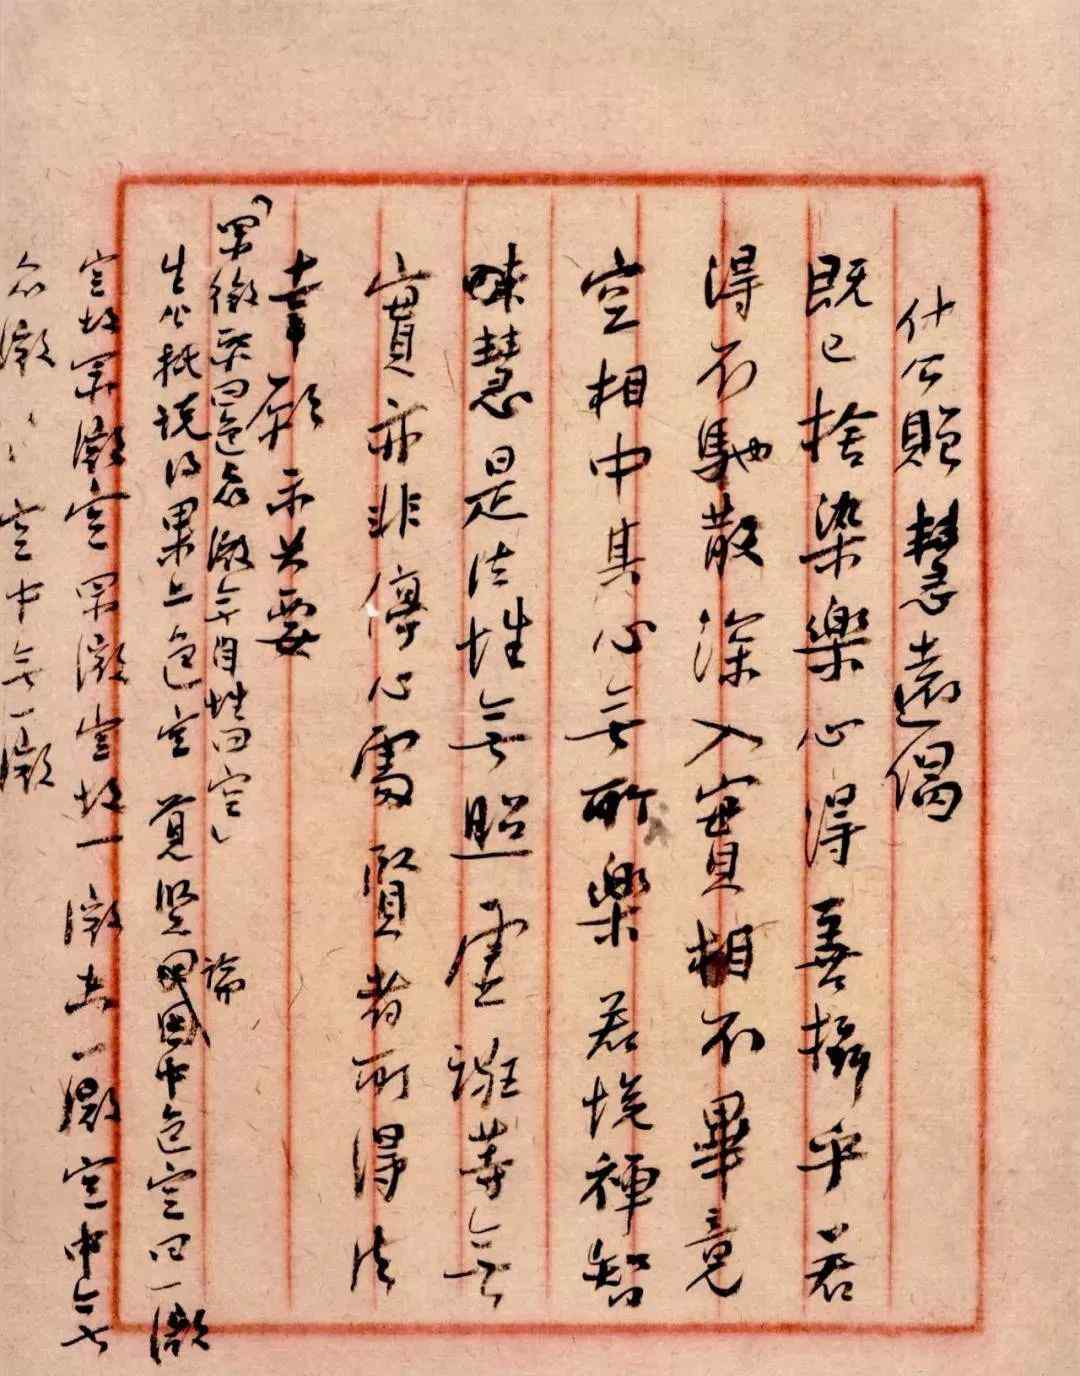 什公贈慧遠偈
既已捨染樂心得善攝乎若
得不馳散深入實相不畢竟
空相中其心無所樂若悅禪智
慧是法性無照虛誑等無
實亦非停心處賢者所得法
幸願示其要
「眾微聚曰色眾微無自性曰空」 論
生公秪說得果上色空 因中色空曰一微
空故眾微空眾微空故一微空一微空中無
众微〻〻空中無一微